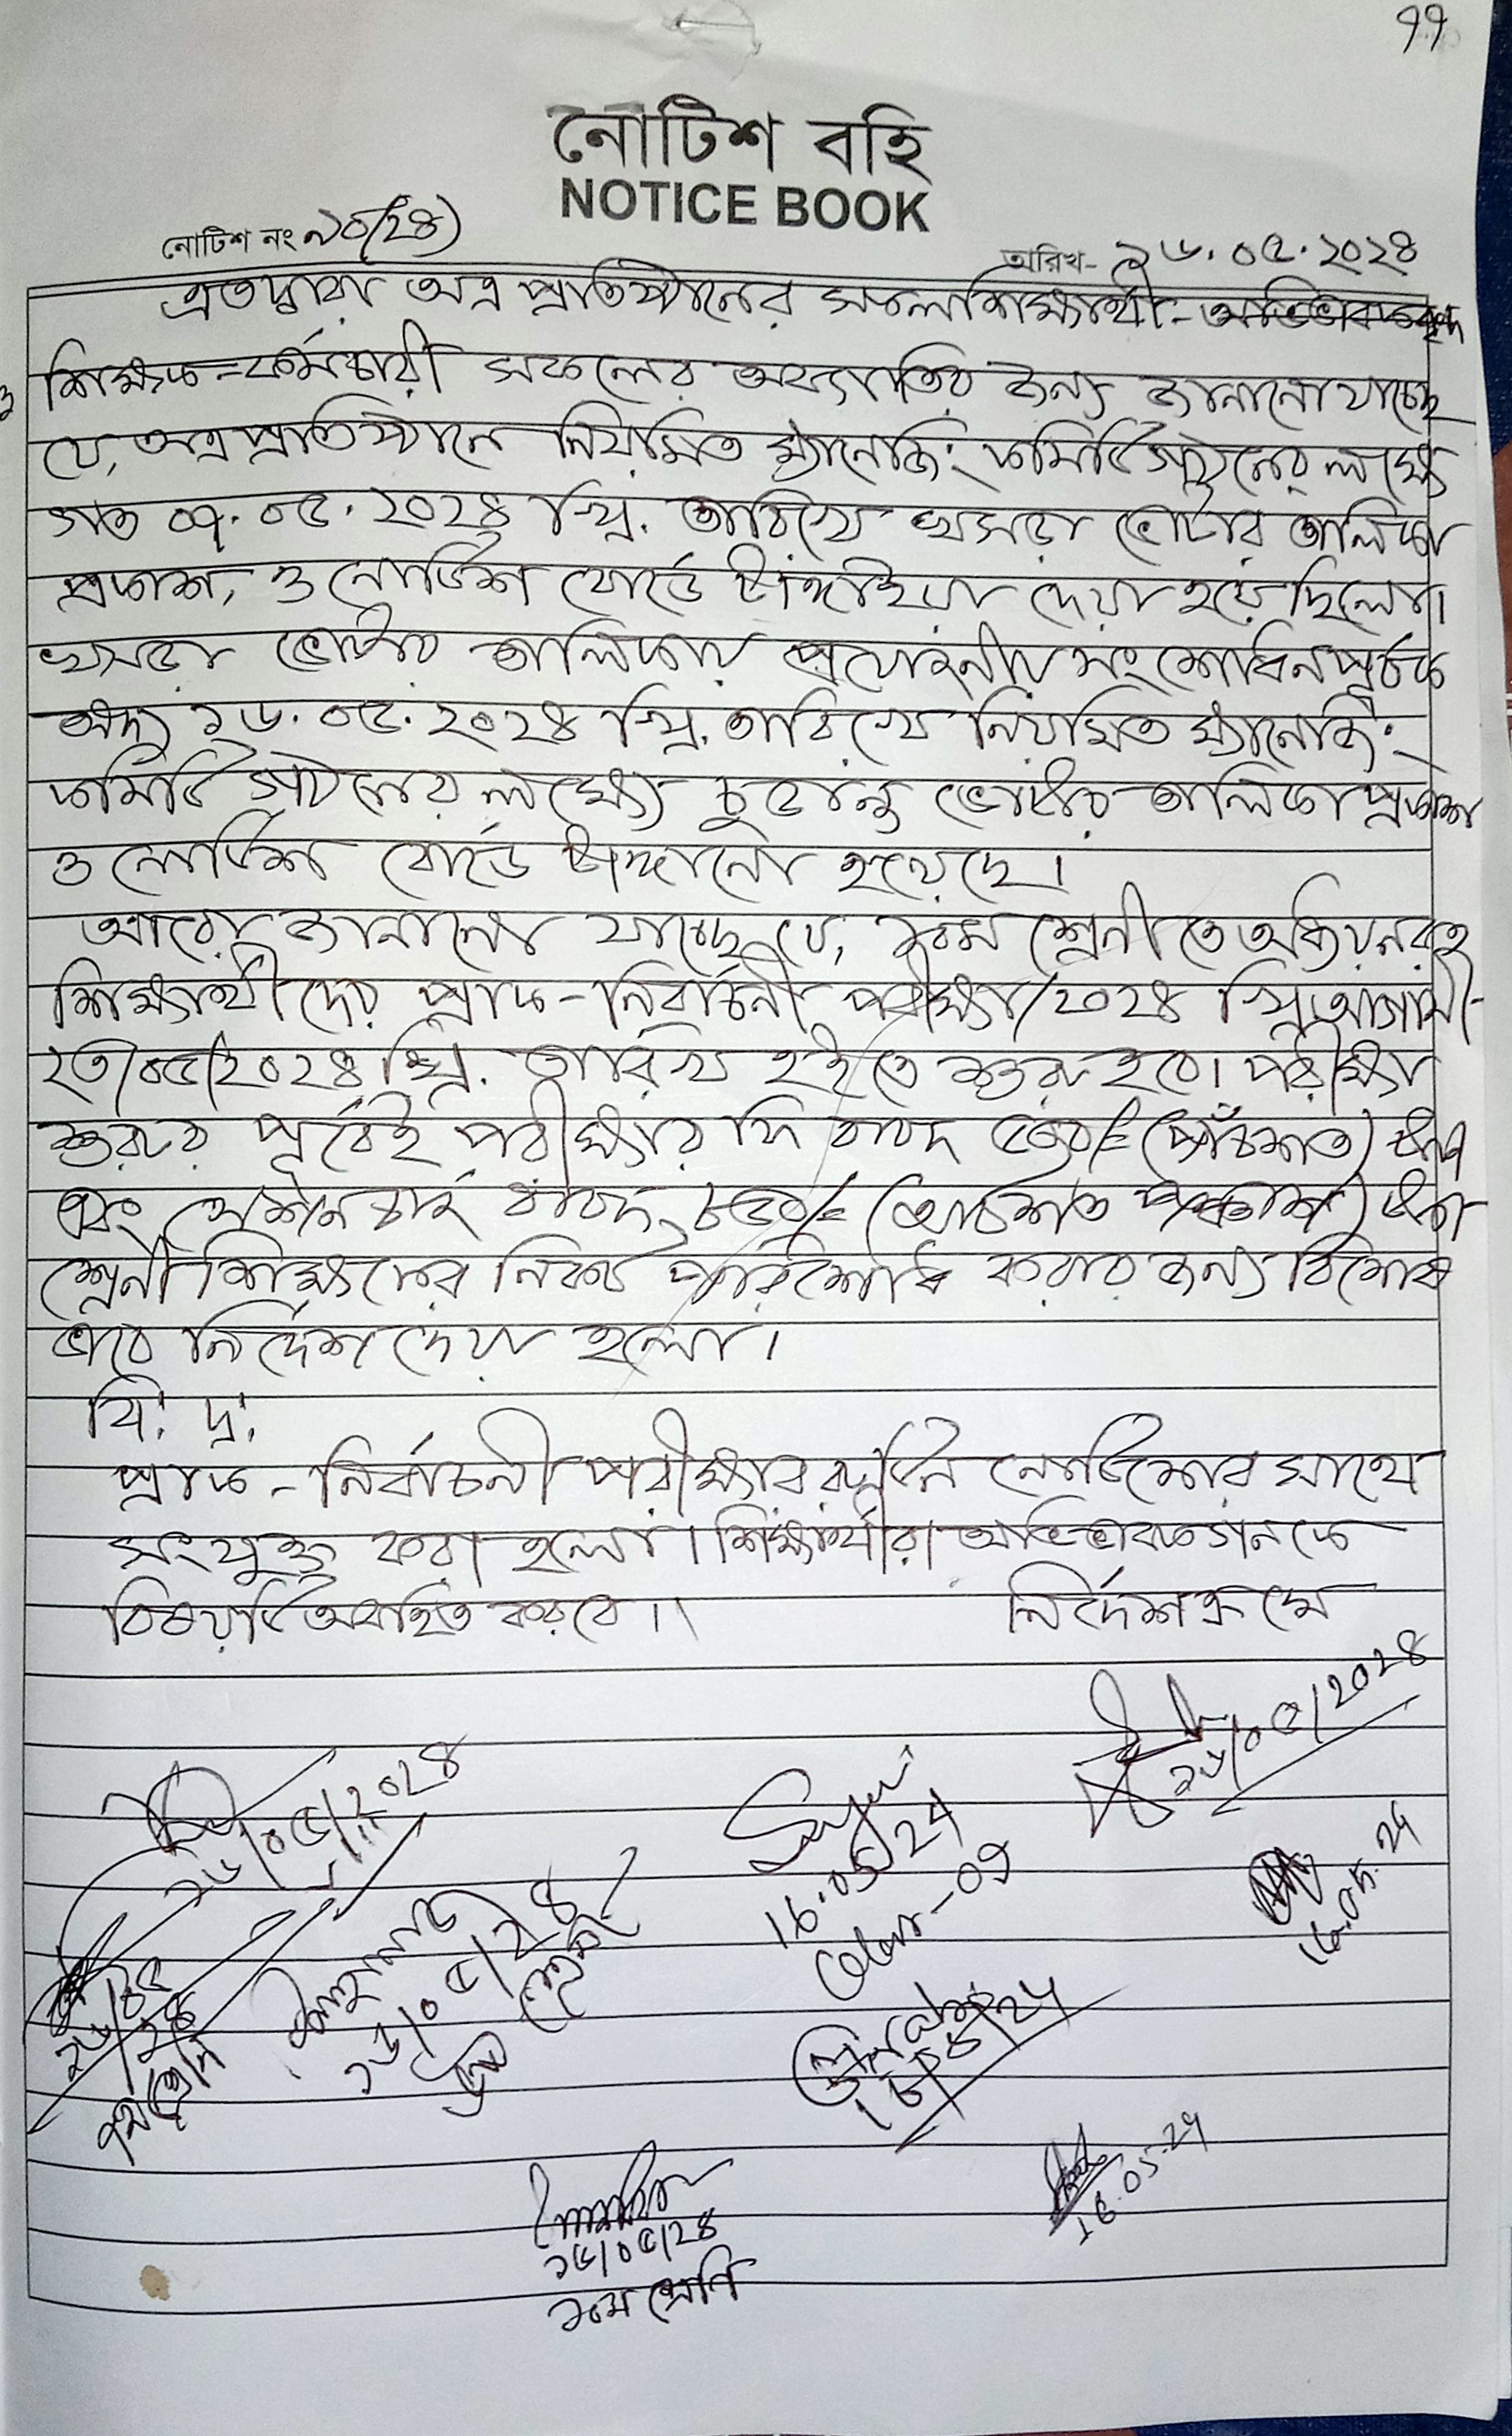 ৭৭
নোটিশ বহি
NOTICE BOOK
নোটিশ নং ১০(২৪)
তারিখ- ১৬.০৫.২০২৪
এতদ্বারা অত্র প্রতিষ্ঠানের সকল শিক্ষার্থী- অভিভাবকবৃন্দ
ও শিক্ষক-কর্মচারী সকলের অবগতির জন্য জানানো যাচ্ছে
যে, অত্র প্রতিষ্ঠানে নিয়মিত ম্যানেজিং কমিটি গঠনের লক্ষ্যে
গত ০৭.০৫.২০২৪ খ্রি. তারিখে খসড়া ভোটার তালিকা
প্রকাশ, ও নোটিশ বোর্ডে টাঙ্গাইয়া দেয়া হয়েছিলো।
খসড়া ভোটার তালিকায় প্রয়োজনীয় সংশোধনপূর্বক
অদ্য ১৬.০৫.২০২৪ খ্রি. তারিখে নিয়মিত ম্যানেজিং
কমিটি গঠনের লক্ষ্যে চুড়ান্ত ভোটার তালিকা প্রকাশ
ও নোটিশ বোর্ডে টাঙ্গানো হয়েছে।
আরো জানানো যাচ্ছে যে, ১০ম শ্রেনীতে অধ্যয়নরত
শিক্ষার্থীদের প্রাক-নির্বাচনী পরীক্ষা/২০২৪ খ্রি. আগামী-
২৩/০৫/২০২৪ খ্রি. তারিখ হইতে শুরু হবে। পরীক্ষা
শুরুর পূর্বেই পরীক্ষার ফি বাবদ ৫০০/= (পাঁচশত) টাকা
এবং সেশন চার্জ বাবদ ৮৫০/= (আটশত পঞ্চাশ) টাকা
শ্রেনী শিক্ষকের নিকট পরিশোধ করার জন্য বিশেষ
ভাবে নির্দেশ দেয়া হলো।
বি: দ্র:
প্রাক-নির্বাচনী পরীক্ষার রুটিন নোটিশের সাথে
সংযুক্ত করা হলো। শিক্ষার্থীরা অভিভাবকগনকে
বিষয়টি অবহিত করবে।।
নির্দেশক্রমে
১৬/০৫/২০২৪
১৬/০৫/২০২৪
16.05/24
Class-09
16.05.24
১৬/০৫/২৪
১৬/০৫/২৪
16/05/24
16.05.24
১৬/০৫/২৪
১০ম শ্রেণি